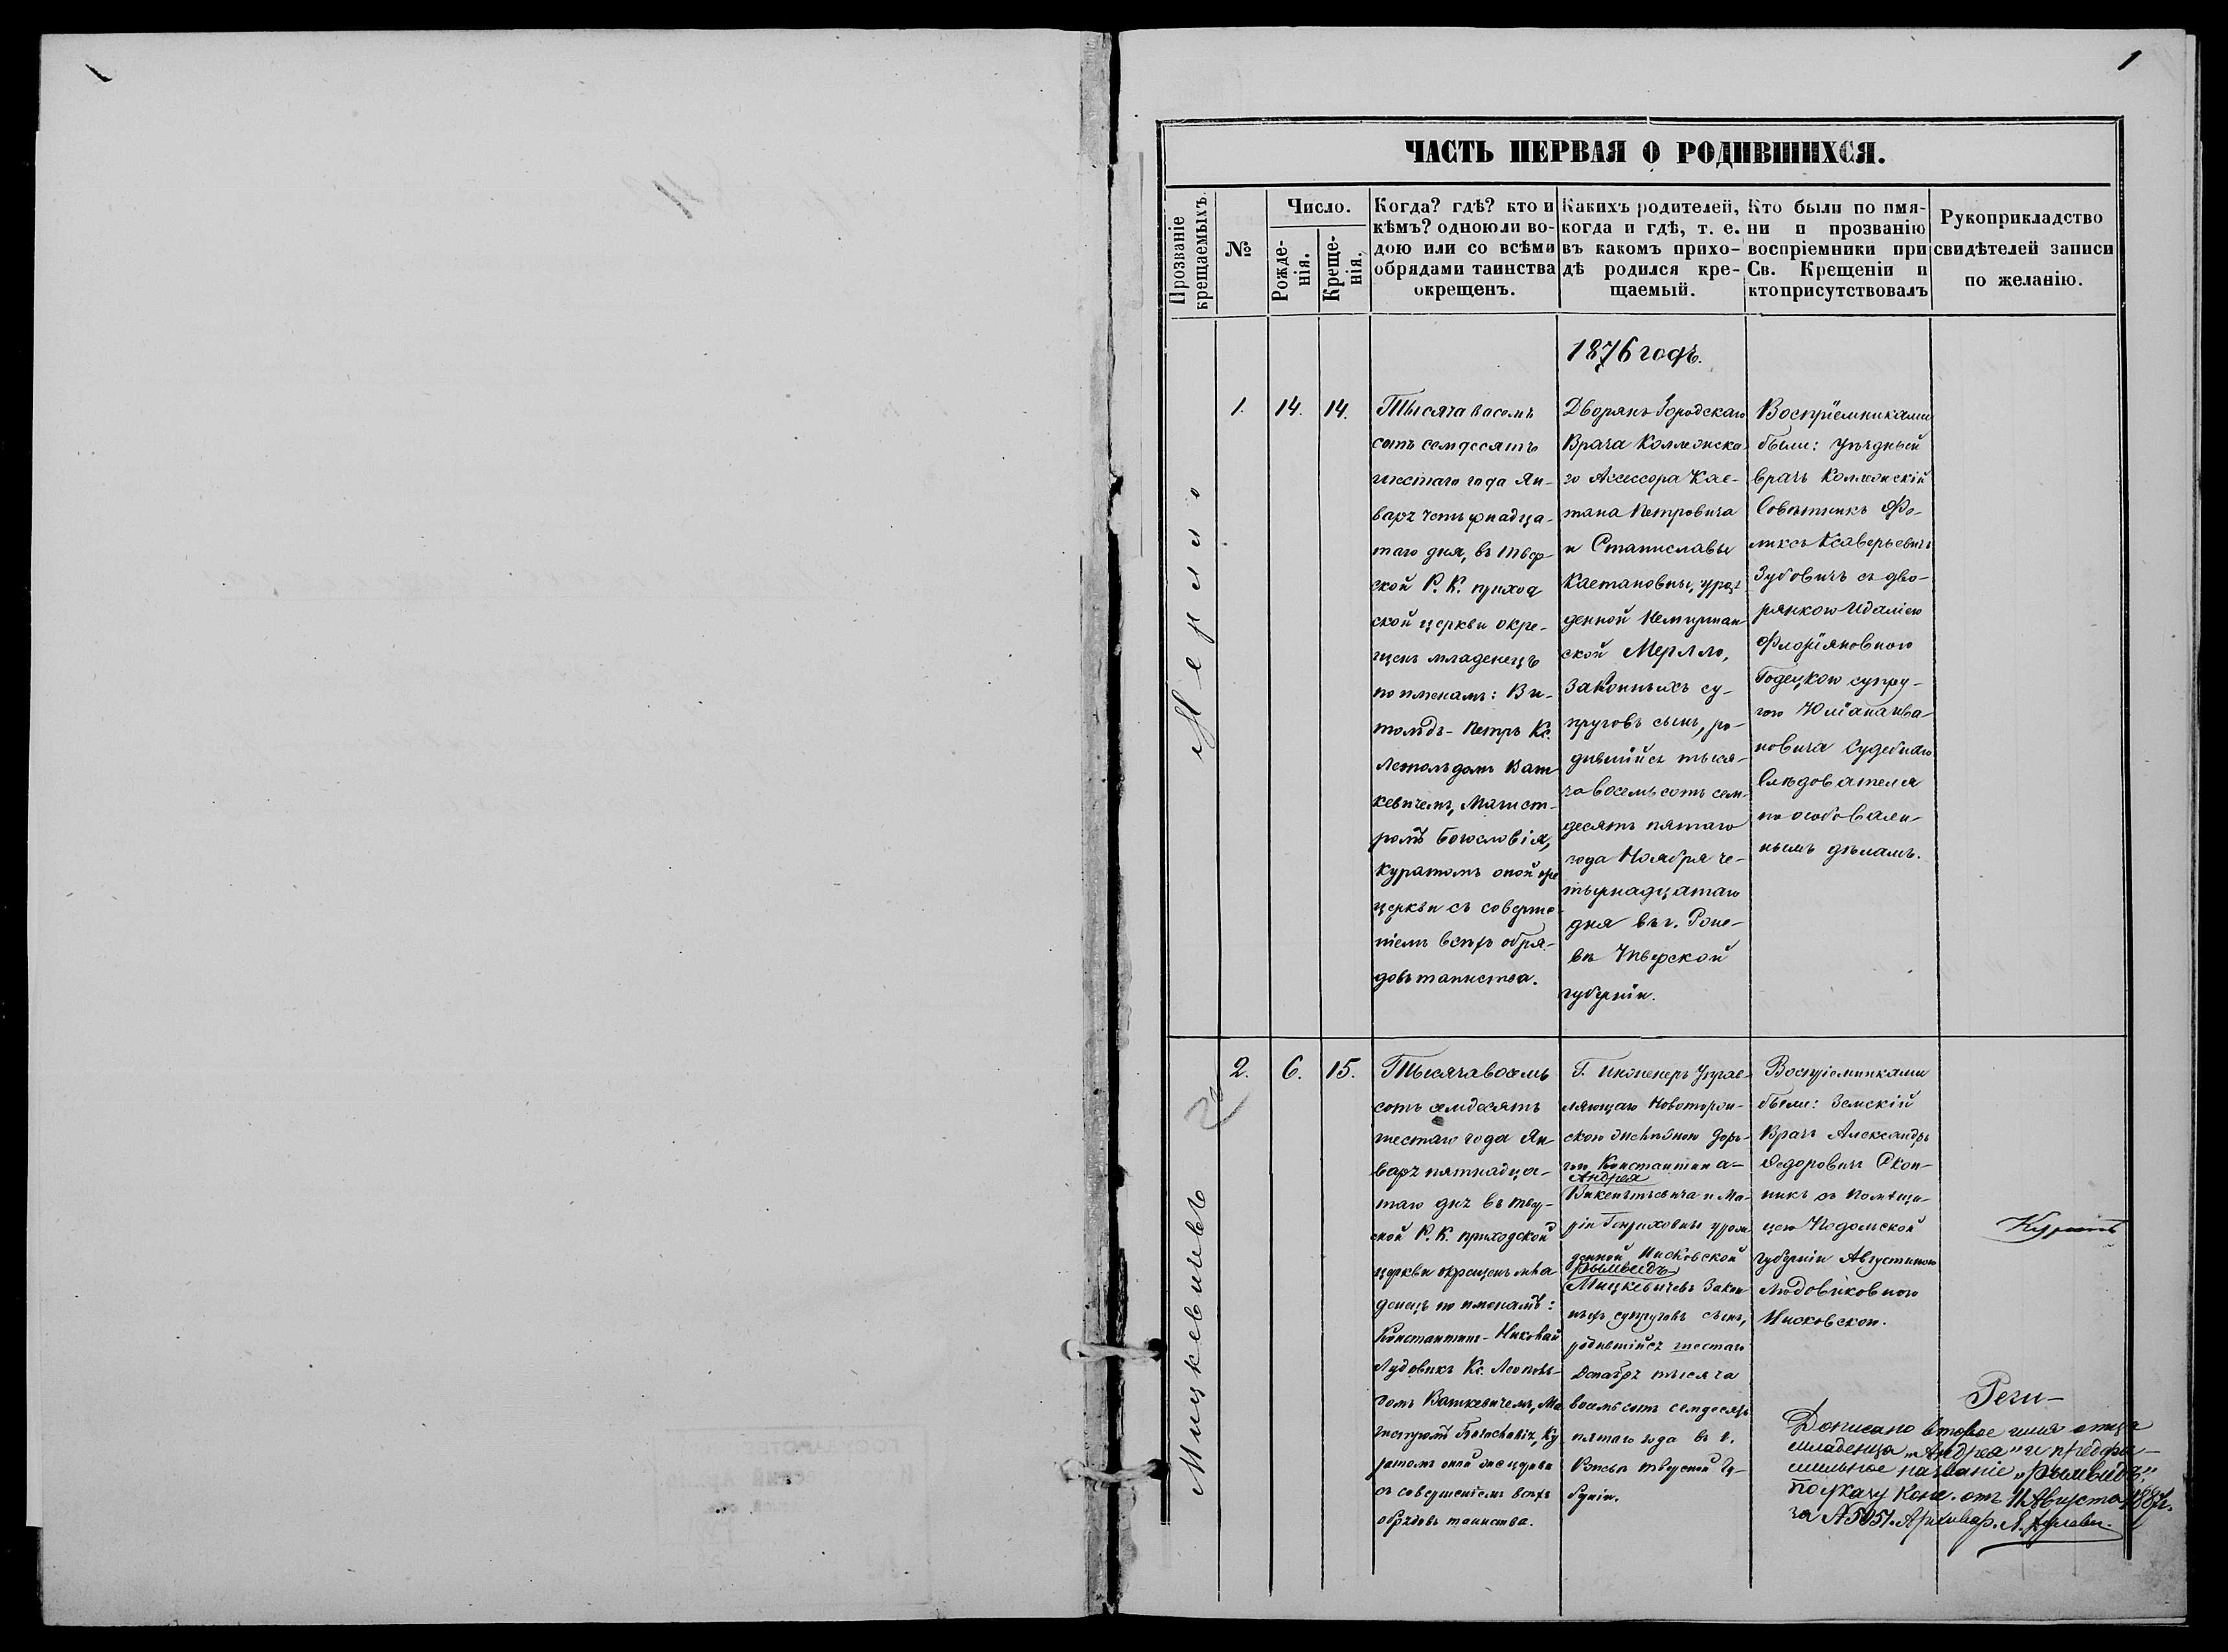 1
ЧАСТЬ ПЕРВАЯ О РОДИВШИХСЯ.
Прозваніе
крещаемыхъ.
№
Число.
Рожде-
нія.
Креще-
нія.
Когда? гдѣ? кто и
кѣмъ? одною ли во-
дою или со всѣми
обрядами таинства
окрещенъ.
Какихъ родителей,
когда и гдѣ, т. е.
въ какомъ прихо-
дѣ родился кре-
щаемый.
Кто были по имя-
ни и прозванію
воспріемники при
Св. Крещеніи и
кто присутствовалъ
Рукоприкладство
свидѣтелей записи
по желанію.
1876 годъ.
Мерлло
1.
14.
14.
Тысяча восемь
сотъ семдесятъ
шестаго года Ян-
варя четырнадца-
таго дня, въ Твер-
ской Р. К. приход
ской церкви окре-
щенъ младенецъ
по именамъ: Ви-
тольдъ-Петръ Кс.
Леопольдомъ Ват
кевичемъ, Магист-
ромъ Богословія,
Куратомъ оной же
церкви съ соверше-
ніемъ всѣхъ обря-
довъ таинства.
Дворянъ Городскаго
Врача Коллежска-
го Ассессора Кае-
тана Петровича
и Станиславы
Каетановны, урож
денной
ской Мерлло,
законныхъ су-
пруговъ сынъ, ро-
дившійся тыся-
ча восемь сотъ сем-
десятъ пятаго
года Ноября че-
тырнадцатаго
дня въ г. Рже-
вѣ Тверской
губерніи.
Воспріемниками
были: Уѣздный
врачъ Коллежскій
Совѣтникъ Фе-
ликсъ Ксаверьевичъ
Зубовичъ съ дво-
рянкою Идаліею
Флоріяновною
Годецкою супру-
гою Юліана Ива-
новича Судебнаго
Слѣдователя
по особо важ-
нымъ дѣламъ.
Мицкевичевъ
2.
6.
15.
Тысяча восемь
сотъ семдесятъ
шестаго года Ян-
варя пятнадца-
таго дня въ Твер-
ской Р. К. приходской
церкви окрещенъ мла
денецъ по именамъ:
Константинъ-Николай
Лудовикъ Кс. Леополь-
домъ Ваткевичемъ, Ма
гистромъ Богословія, Ку
ратомъ оной же церкви
съ совершеніемъ всѣхъ
обрядовъ таинства.
Г. Инженеръ Управ-
ляющаго Новоторж-
скою желѣзною доро-
гою Константина-
Андрея
Викентьевича и Ма-
ріи Генриховны урож
денной Нисковской
Рымвидъ
Мицкевичевъ Закон-
ныхъ супруговъ сынъ,
родившійся шестаго
Декабря тысяча
восемь сотъ семдесятъ
пятаго года въ г.
Ржевѣ Тверской Гу-
берніи.
Воспріемниками
были: Земскій
Врачъ Александръ
Федоровичъ
никъ съ Помѣщи-
цею Подольской
губерніи Августиною
Людовиковною
Нисковскою.
Куратъ
Дописано второе имя отца
младенца „Андрея" и предфа-
мильное названіе „Рымвидъ"
по указу Конс. отъ 11 Августа
за № 5051. Архивар.